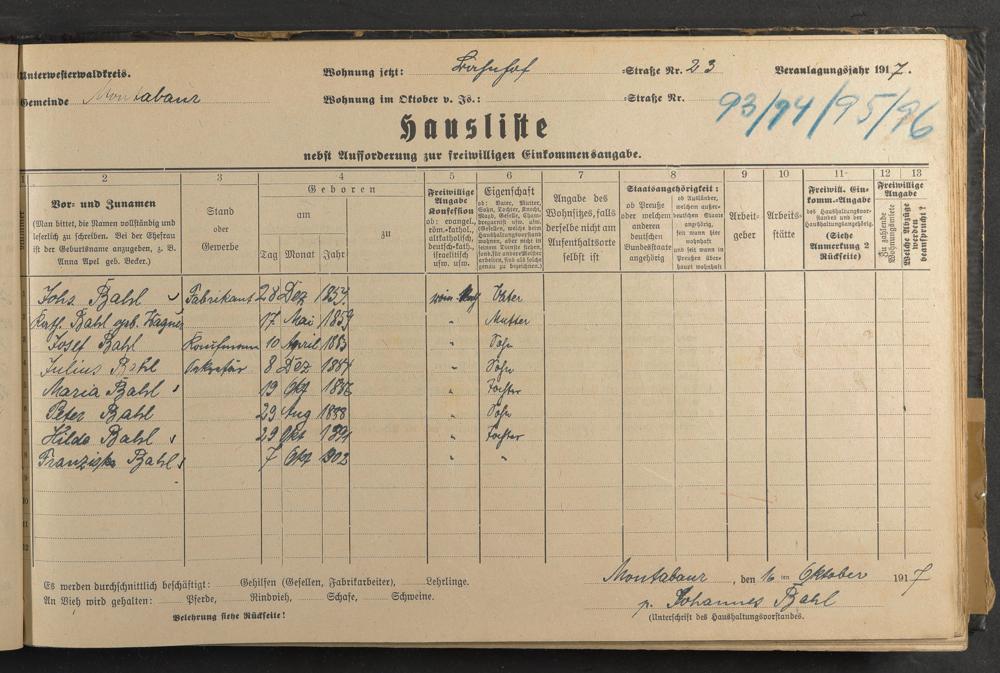 Unterwesterwaldkreis. Wohnung jetzt: Bahnhof -Straße Nr. 23 Veranlagungsjahr 1917.
Gemeinde Montabaur Wohnung im Oktober v. Js.: -Straße Nr.
93/94/95/96
Hausliste
nebst Aufforderung zur freiwilligen Einkommensangabe.
1 2 3 4 5 6 7 8 9 10 11 12 13
Vor- und Zunamen
(Man bittet, die Namen vollständig und
leserlich zu schreiben. Bei der Ehefrau
ist der Geburtsname anzugeben, z. B.
Anna Apel geb. Becker.)
Stand
oder
Gewerbe
Geboren
am zu
Tag Monat Jahr
Freiwillige
Angabe
Konfession
ob: evangel.,
röm.-kathol.,
altkatholisch,
deutsch-kath.,
israelitisch
usw. usw.
Eigenschaft
ob: Vater, Mutter,
Sohn, Tochter, Knecht,
Magd, Geselle,
Angabe des
Wohnsitzes, falls
derselbe nicht am
Aufenthaltsorte
selbst ist
Staatsangehörigkeit:
ob Preuße
oder welchem
anderen
deutschen
Bundesstaate
angehörig
ob Ausländer,
welchem außer-
deutschen Staate
angehörig,
seit wann hier
wohnhaft
und seit wann in
Preußen über-
haupt wohnhaft
Arbeit-
geber
Arbeits-
stätte
Freiwill. Ein-
komm.-Angabe
des Haushaltungsvor-
standes und der
Haushaltungsangehörig.
(Siehe
Anmerkung 2
Rückseite)
Freiwillige
Angabe
Zu zahlende
Wohnungsmiete
Welche Abzüge
werden
beansprucht?
Johs Bahl Fabrikant 28 Dez 1857 röm. kath Vater
Kath. Bahl geb. Wagner 17 Mai 1859 " Mutter
Josef Bahl Kaufmann 10 April 1883 " Sohn
Julius Bahl Sekretär 8 Dez 1884 " Sohn
Maria Bahl 19 Okt 1886 " Tochter
Peter Bahl 29 Aug 1888 " Sohn
Hilda Bahl 29 Okt 1891 " Tochter
Franziska Bahl 7 Okt 1902 " "
Es werden durchschnittlich beschäftigt: Gehilfen (Gesellen, Fabrikarbeiter), Lehrlinge.
An Vieh wird gehalten: Pferde, Rindvieh, Schafe, Schweine.
Belehrung siehe Rückseite!
Montabaur, den 16 ten Oktober 1917
p. Johannes Bahl
(Unterschrift des Haushaltungsvorstandes.